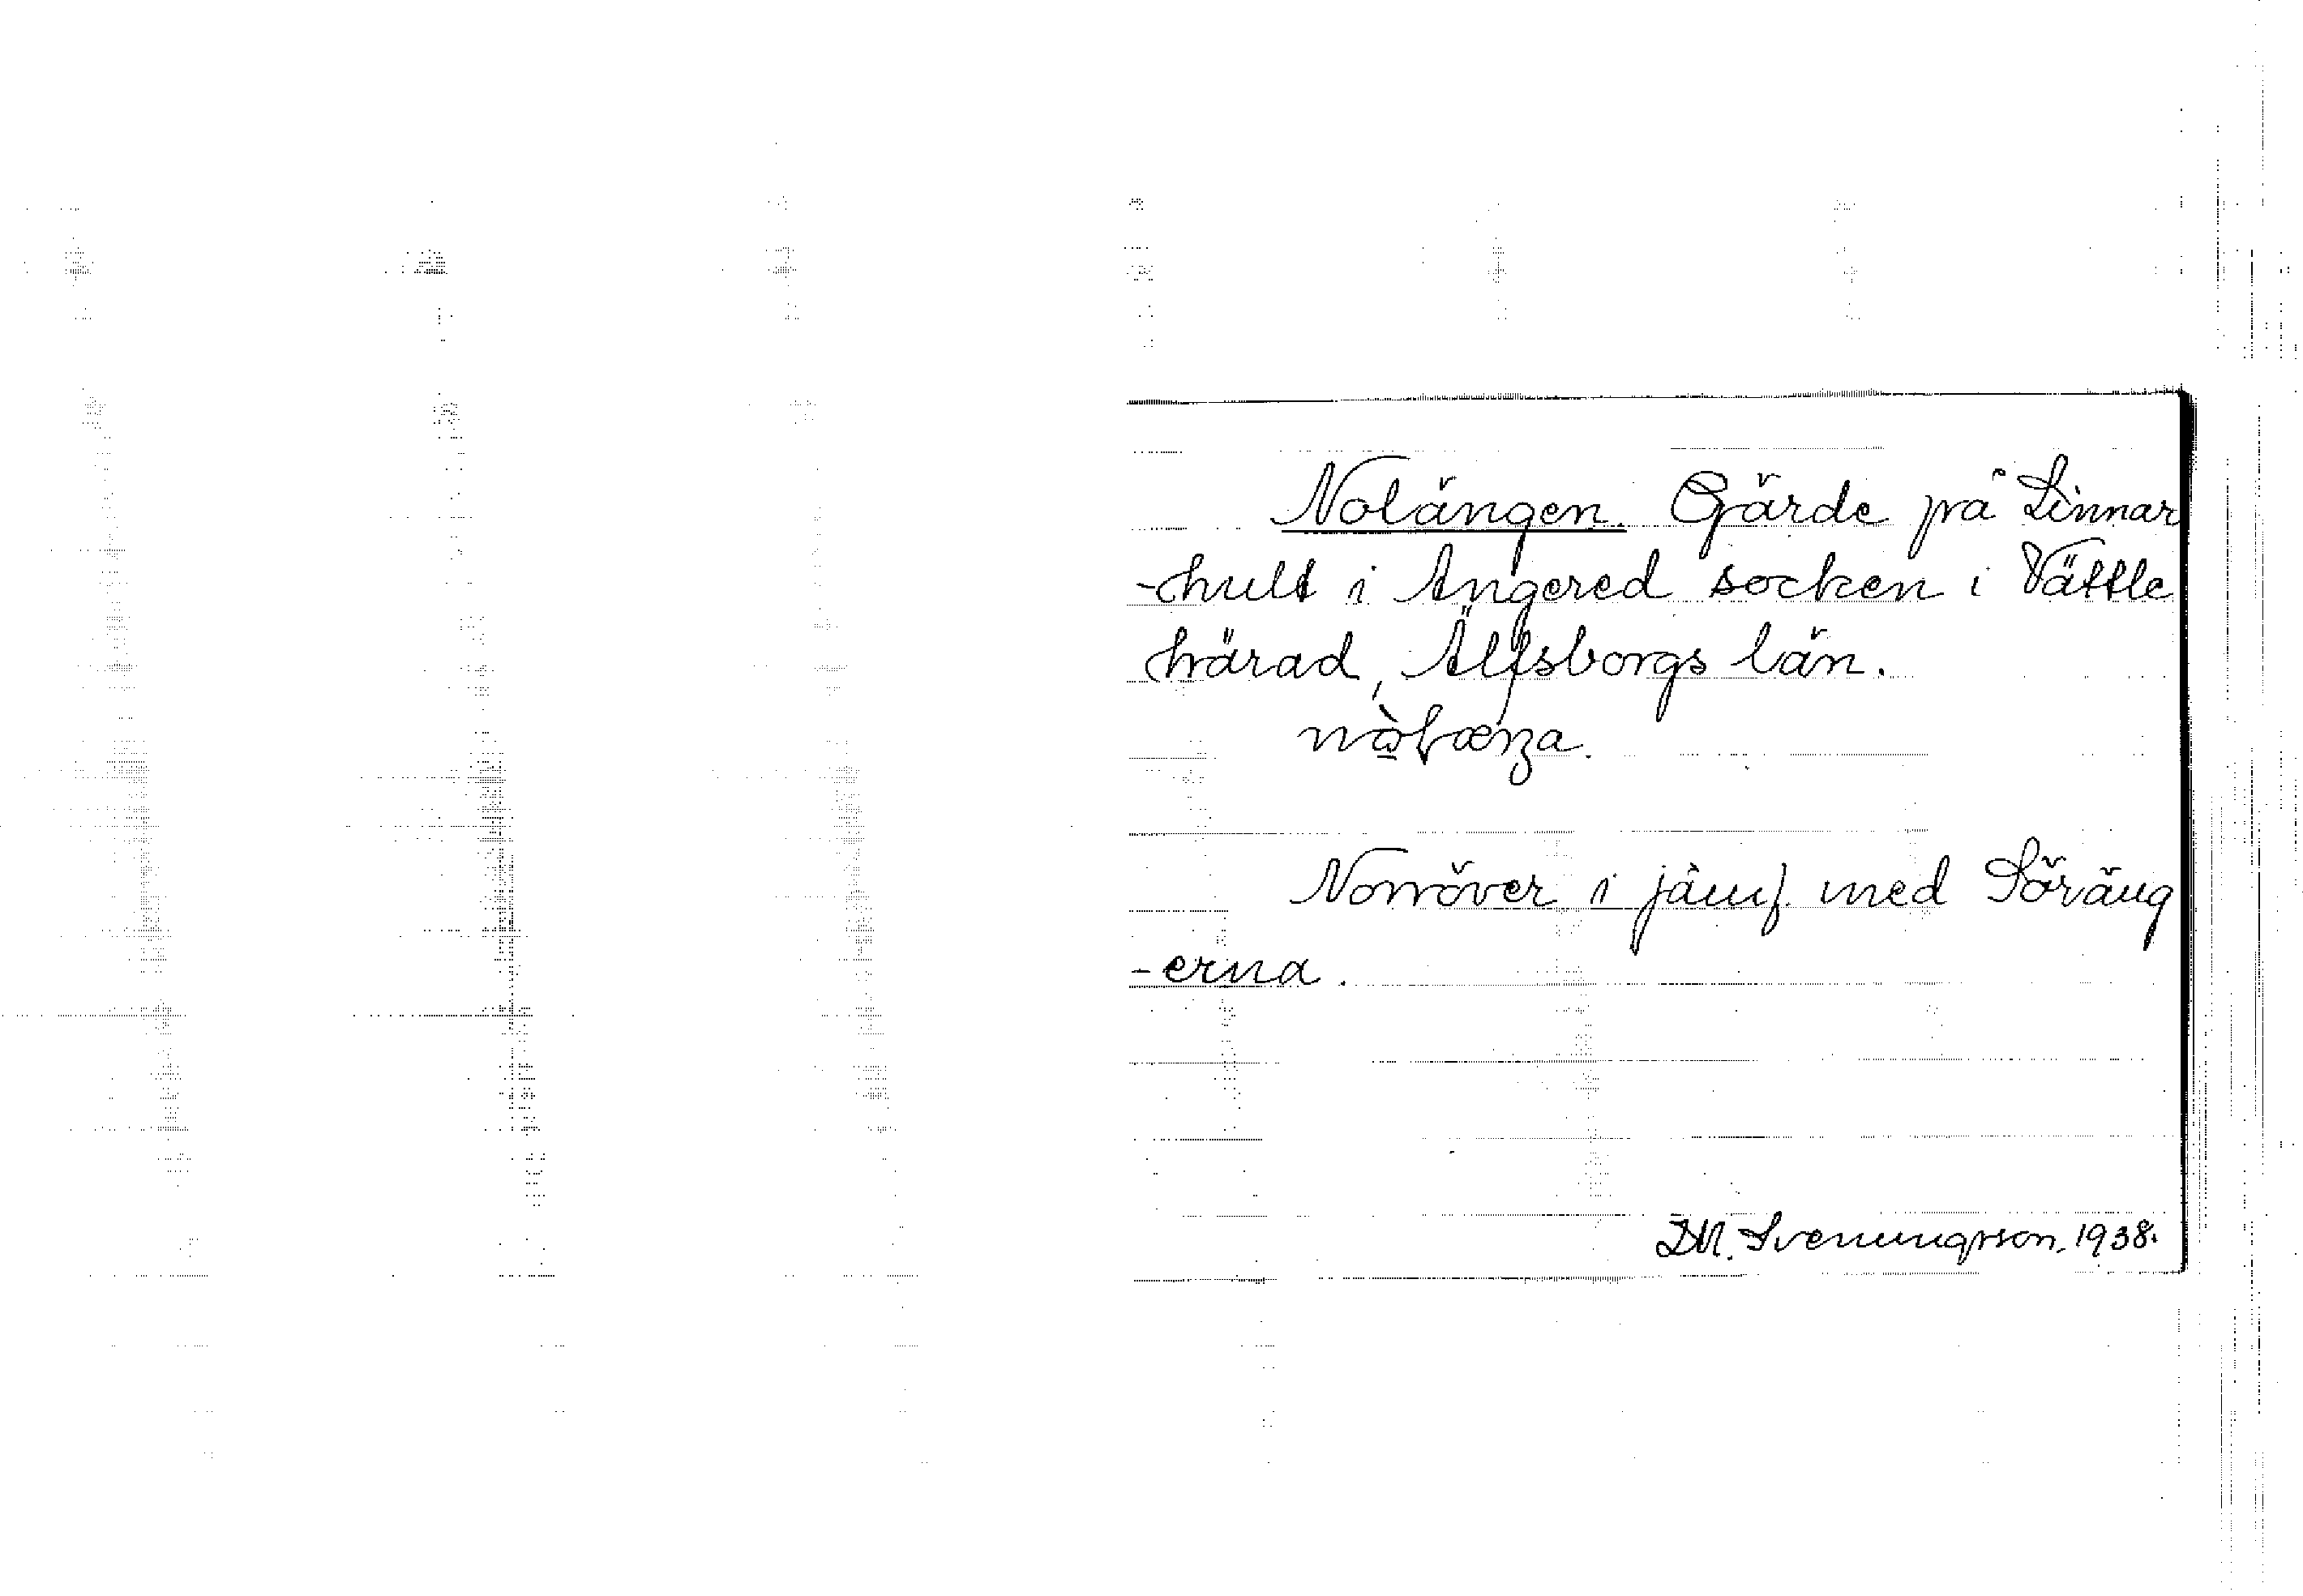 Nolängen. Gärde på Linnar
-hult i Angered socken i Vättle
härad, Älfsborgs län.
Norröver i jämf. med Söräng
-erna.
D.M. Svenungsson, 1938.